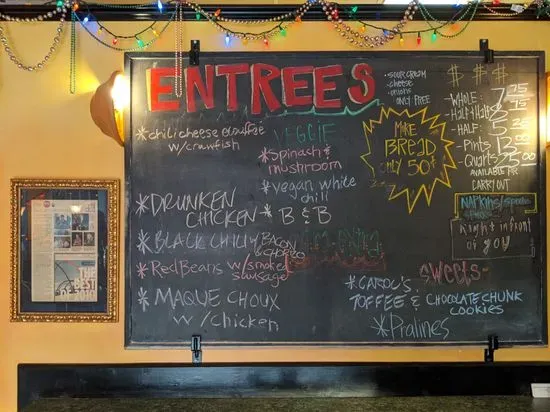 ENTREES
*chili cheese etouffee
w/crawfish
*DRUNKEN
CHICKEN
*BLACK CHILI
*Red Beans w/smoked
sausage
*MAQUE CHOUX
w/chicken
VEGGIE
*Spinach &
mushroom
*vegan white
chili
*B & B
BACON
& CHORIZO
-sour cream
-cheese
-onions
ONLY FREE
MAKE
BREAD
ONLY 50¢
$ $ $
-WHOLE: 7.75
-Half + Half:
-HALF: 5.25
-Pints: 13.00
-Quarts: 25.00
AVAILABLE FOR
CARRY OUT
NAPKINS/spoons
Right in front
of you
SWEETS
*CAROL'S
TOFFEE & CHOCOLATE CHUNK
COOKIES
*Pralines
THE
BEST